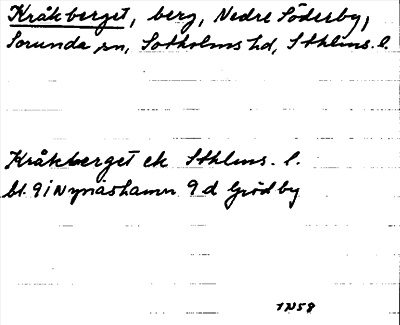 Kråkberget, berg, Nedre Söderby,
Sorunda sn, Sotholms hd, Sthlms. l.
Kråkberget ek Sthlms. l.
bl. 9 i Nynäshamn 9 d Grödby
1258